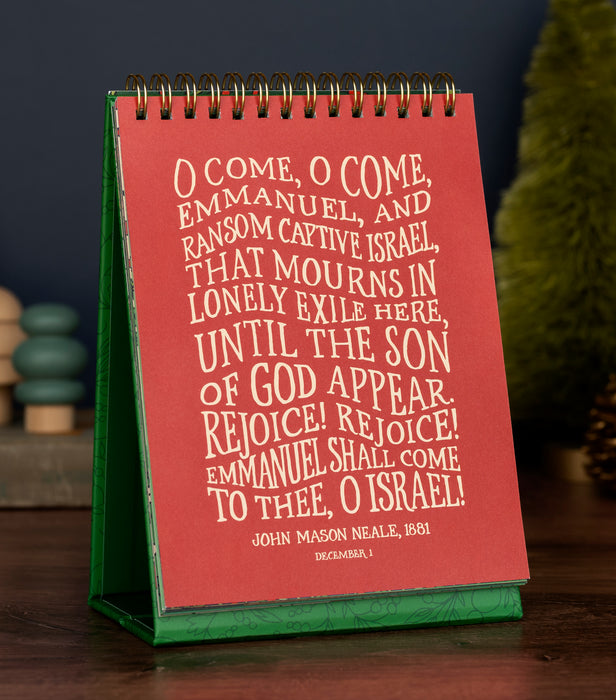 O COME, O COME,
EMMANUEL, AND
RANSOM CAPTIVE ISRAEL,
THAT MOURNS IN
LONELY EXILE HERE,
UNTIL THE SON
OF GOD APPEAR.
REJOICE! REJOICE!
EMMANUEL SHALL COME
TO THEE, O ISRAEL!
JOHN MASON NEALE, 1881
DECEMBER 1